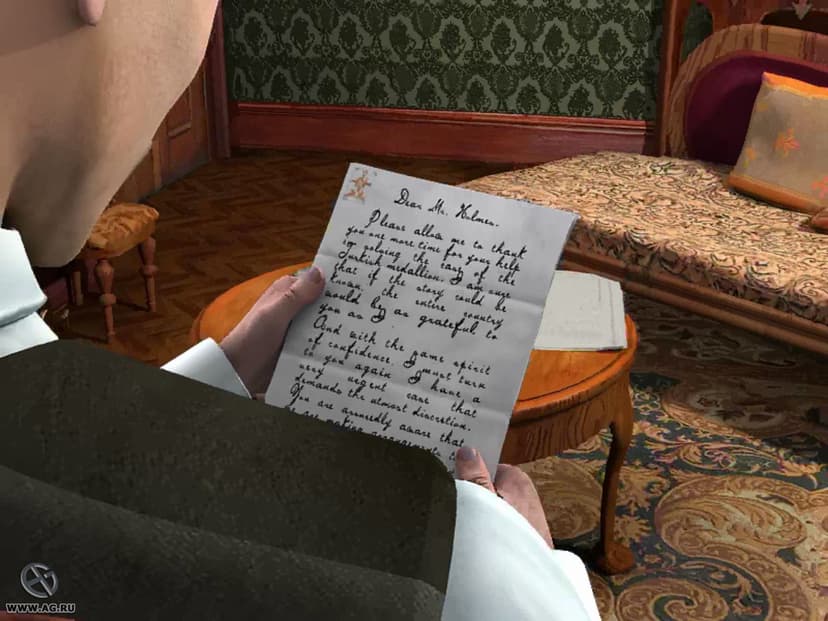 Dear Mr. Holmes.
Please allow me to thank
you one more time for your help
in solving the case of the
Turkish medallion. I am sure
that if the story could be
known, the entire country
would be as grateful to
you as I.
And with the same spirit
of confidence I must turn
to you again. I have a
very urgent case that
demands the utmost discretion.
You are assuredly aware that
we are making arrangements
WWW.AG.RU